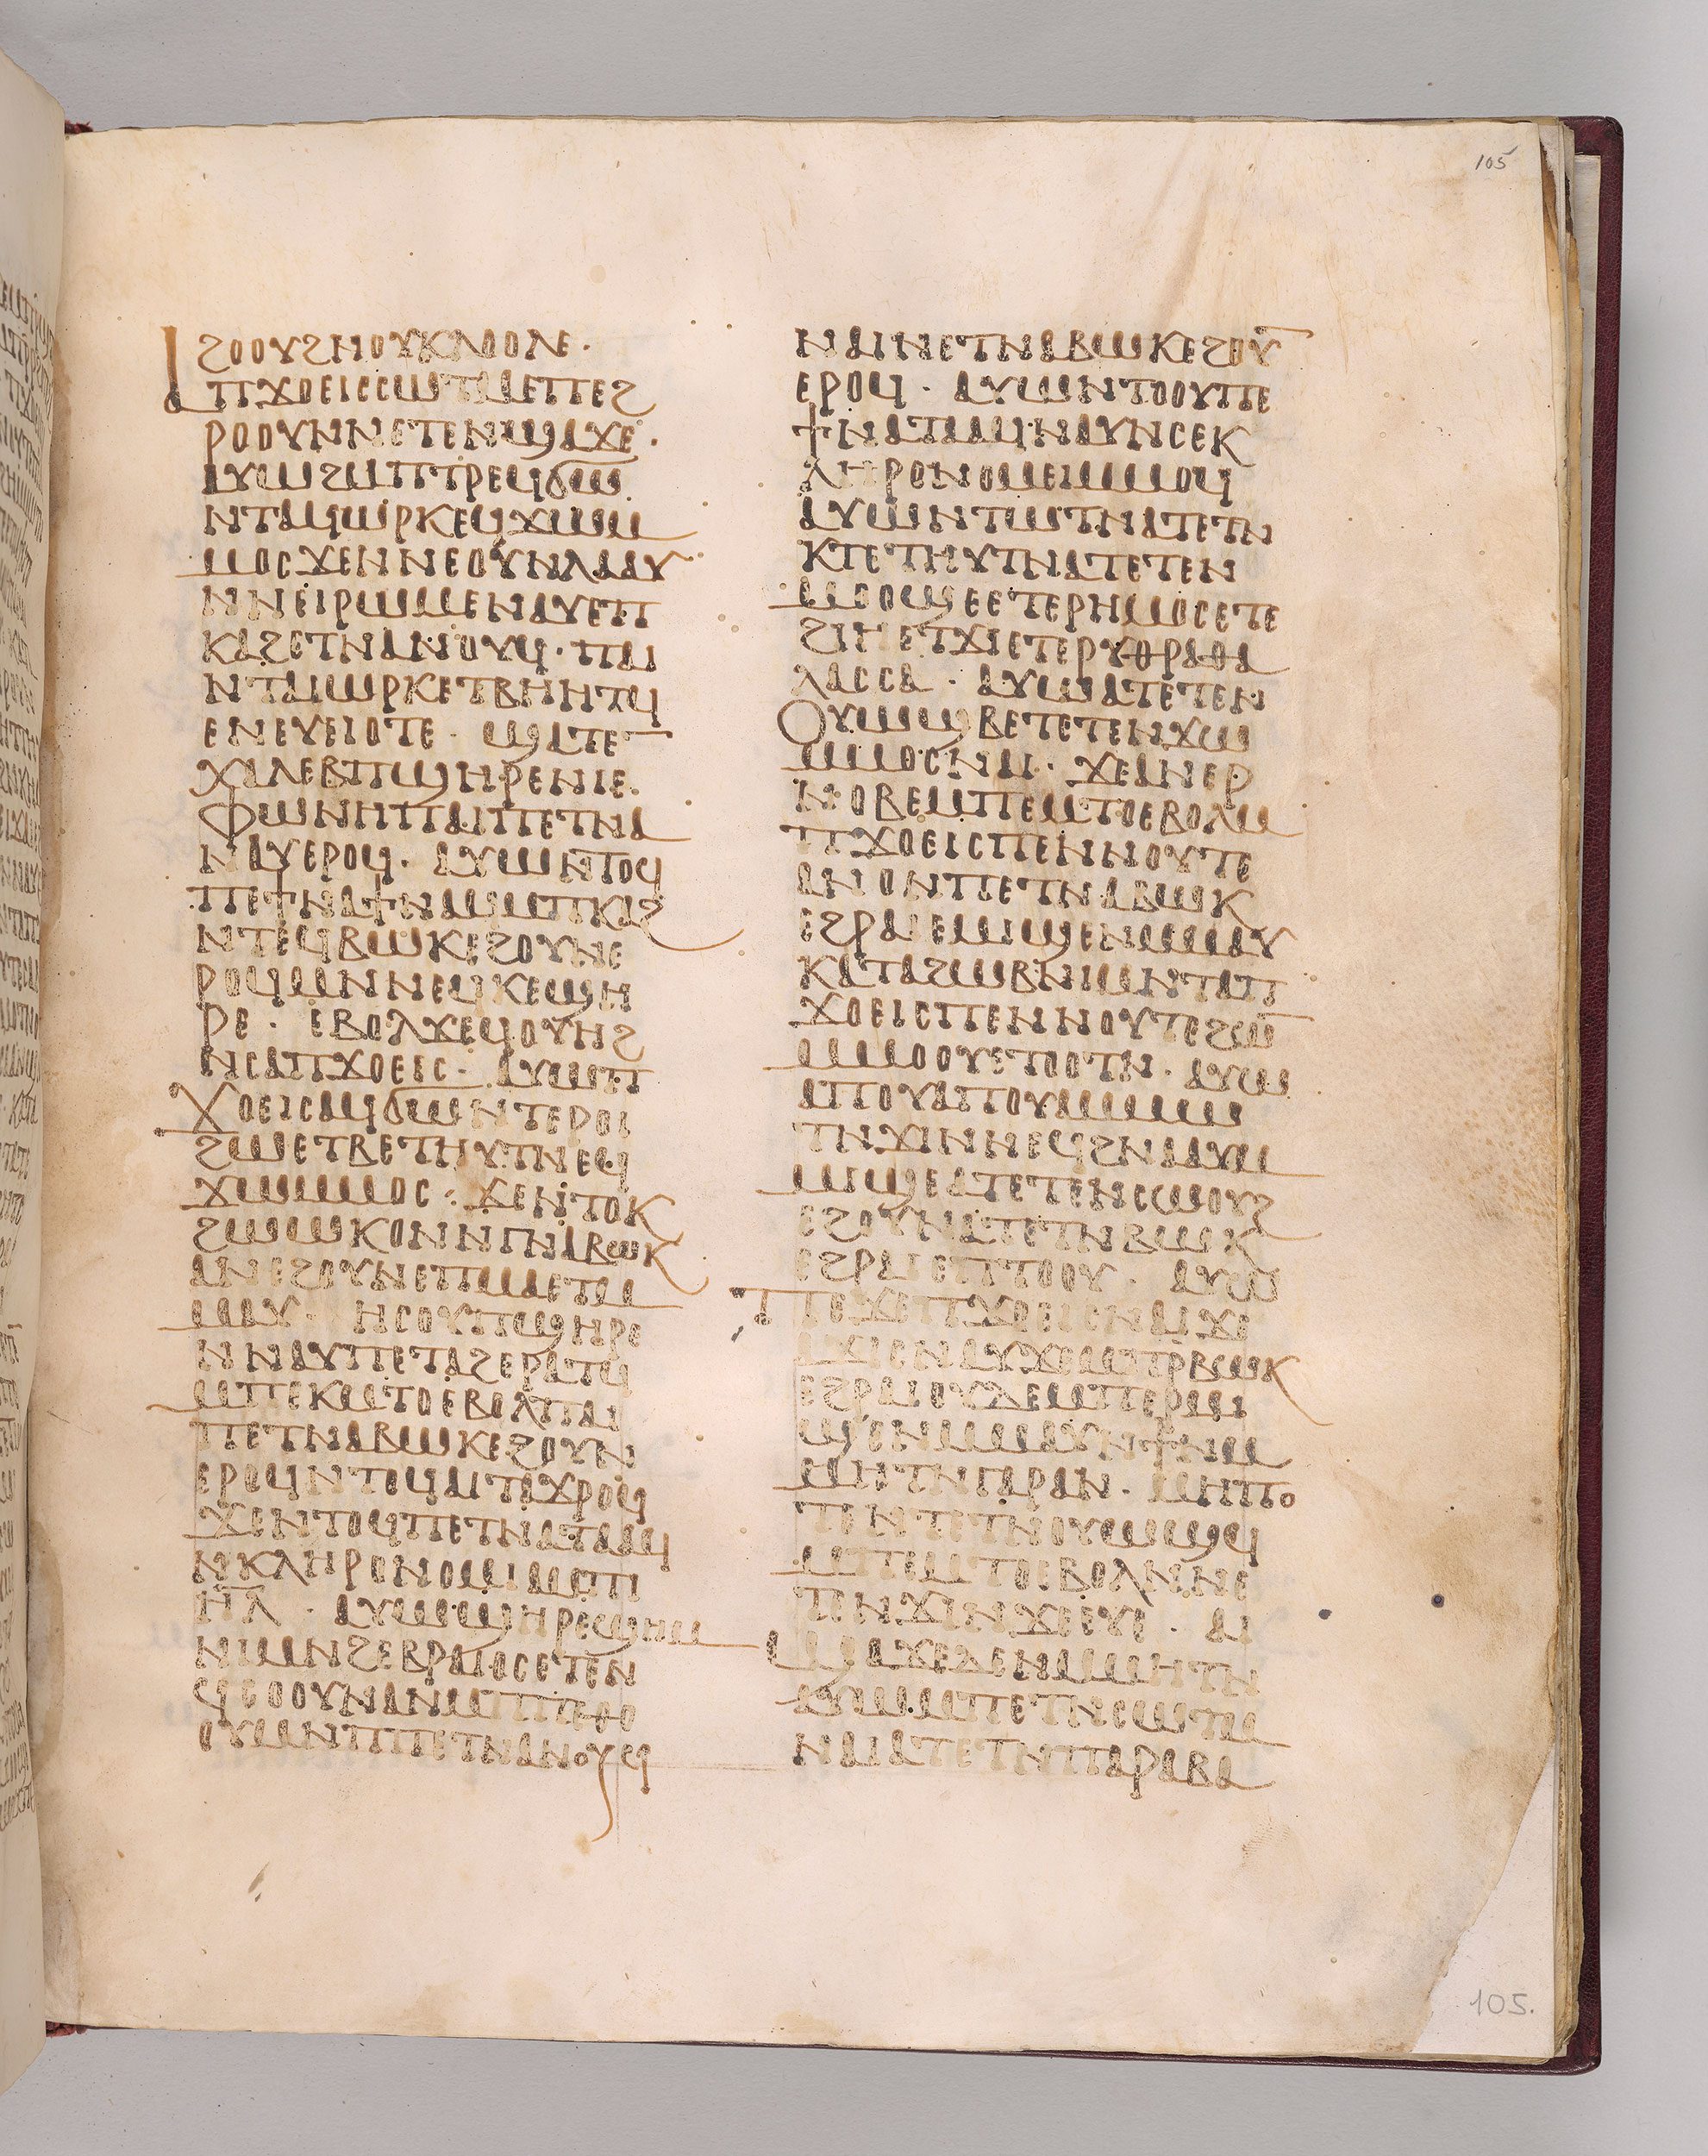 ϩⲟⲟⲩϩⲛⲟⲩⲕⲗⲟⲟⲗⲉ·
ⲁⲡϫⲟⲉⲓⲥⲥⲱⲧⲙⲉⲡⲉϩ
ⲣⲟⲟⲩⲛⲛⲉⲧⲉⲛϣⲁϫⲉ·
ⲁⲩⲱϩⲙⲡⲧⲣⲉϥϭⲱ̅
ⲛⲧⲁϥⲱⲣⲕⲉϥϫⲱⲙ
ⲙⲟⲥϫⲉⲛⲛⲉⲟⲩⲛⲗⲁⲁⲩ
ⲛⲛⲉⲓⲣⲱⲙⲉⲛⲁⲩⲉⲡ
ⲕⲁϩⲉⲧⲛⲁⲛⲟⲩϥ·ⲡⲁⲓ
ⲛⲧⲁⲓⲱⲣⲕⲉⲧⲃⲏⲏⲧϥ
ⲉⲛⲉⲩⲉⲓⲟⲧⲉ· ϣⲁⲧⲉ
ⲭⲁⲗⲉⲃⲡϣⲏⲣⲉⲛⲓⲉ
ⲫⲱⲛⲏⲡⲁⲓⲡⲉⲧⲛⲁ
ⲛⲁⲩⲉⲣⲟϥ· ⲁⲩⲱⲛⲧⲟϥ
ⲡⲉϯⲛⲁϯⲛⲁϥⲙⲡⲕⲁϩ
ⲛⲧⲉϥⲃⲱⲕⲉϩⲟⲩⲛⲉ
ⲣⲟϥⲙⲛⲛⲉϥⲕⲉϣⲏ
ⲣⲉ· ⲉⲃⲟⲗϫⲉϥⲟⲩⲏϩ
ⲛⲥⲁⲡϫⲟⲉⲓⲥ· ⲁⲩⲱⲡ
ϫⲟⲉⲓⲥⲁϥϭⲱⲛⲧⲉⲣⲟⲓ
ϩⲱⲉⲧⲃⲉⲧⲏⲩⲧⲛⲉϥ
ϫⲱⲙⲙⲟⲥ· ϫⲉⲛⲧⲟⲕ
ϩⲱⲱⲕⲟⲛⲛⲅⲛⲁⲃⲱⲕ
ⲁⲛⲉϩⲟⲩⲛⲉⲡⲙⲁⲉⲧⲙ
ⲙⲁⲩ· ⲏⲥⲟⲩⲡϣⲏⲣⲉ
ⲛⲛⲁⲩⲡⲉⲧⲁϩⲉⲣⲁⲧϥ
ⲙⲡⲉⲕⲙⲧⲟⲉⲃⲟⲗⲡⲁⲓ
ⲡⲉⲧⲛⲁⲃⲱⲕⲉϩⲟⲩⲛ
ⲉⲣⲟϥⲛⲧⲟϥⲙⲁⲧⲁϫⲣⲟϥ
ϫⲉⲛⲧⲟϥⲡⲉⲧⲛⲁⲧⲁⲁϥ
ⲛⲕⲗⲏⲣⲟⲛⲟⲙⲓⲙⲡⲓ
ⲏ̅ⲗ̅· ⲁⲩⲱϣⲏⲣⲉϣⲏⲙ
ⲛⲓⲙⲛϩⲉⲃⲣⲁⲓⲟⲥⲉⲧⲉⲛ
ϥⲥⲟⲟⲩⲛⲁⲛⲙⲡⲡⲉⲑⲟ
ⲟⲩⲙⲛⲡⲡⲉⲧⲛⲁⲛⲟⲩⲉϥ
ⲛⲁⲓⲛⲉⲧⲛⲁⲃⲱⲕⲉϩⲟⲩ̅
ⲉⲣⲟϥ· ⲁⲩⲱⲛⲧⲟⲟⲩⲡⲉ
ϯⲛⲁⲧⲁⲁϥⲛⲁⲩⲛⲥⲉⲕ
ⲗⲏⲣⲟⲛⲟⲙⲉⲓⲙⲙⲟϥ
ⲁⲩⲱⲛⲧⲱⲧⲛⲁⲧⲉⲧⲛ
ⲕⲧⲉⲧⲏⲩⲧⲛⲁⲧⲉⲧⲉⲛ
ⲙⲟⲟϣⲉⲉⲧⲉⲣⲏⲙⲟⲥⲉⲧⲉ
ϩⲓⲏⲉⲧϫⲓⲉⲧⲉⲣⲩⲑⲣⲁⲑⲁ
ⲗⲁⲥⲥⲁ· ⲁⲩⲱⲁⲧⲉⲧⲉⲛ
ⲟⲩⲱϣⲃⲉⲧⲉⲧⲉⲛϫⲱ
ⲙⲙⲟⲥⲛⲁⲓ· ϫⲉⲁⲛⲉⲣ
ⲛⲟⲃⲉⲙⲡⲉⲙⲧⲟⲉⲃⲟⲗⲙ
ⲡϫⲟⲉⲓⲥⲡⲉⲛⲛⲟⲩⲧⲉ
ⲁⲛⲟⲛⲡⲉⲧⲛⲁⲃⲱⲕ
ⲉϩⲣⲁⲓⲉⲙⲓϣⲉⲛⲙⲙⲁⲩ
ⲕⲁⲧⲁϩⲱⲃⲛⲓⲙⲛⲧⲁⲡ
ϫⲟⲉⲓⲥⲡⲉⲛⲛⲟⲩⲧⲉϩⲱ̅
ⲙⲙⲟⲟⲩⲉⲧⲟⲟⲧⲛ· ⲁⲩⲱ
ⲁⲡⲟⲩⲁⲡⲟⲩⲁⲙⲙⲱ
ⲧⲛϫⲓⲛⲛⲉϥϩⲛⲁⲁⲩⲙ
ⲙⲓϣⲉⲁⲧⲉⲧⲉⲛⲥⲱⲟⲩϩ
ⲉϩⲟⲩⲛⲁⲧⲉⲧⲛⲃⲱⲕ
ⲉϩⲣⲁⲓⲉⲡⲧⲟⲟⲩ· ⲁⲩⲱ
ⲡⲉϫⲉⲡϫⲟⲉⲓⲥⲛⲁⲓϫⲉ
ⲁϫⲓⲥⲛⲁⲩϫⲉⲙⲡⲣⲃⲱⲕ
ⲉϩⲣⲁⲓⲟⲩⲇⲉⲙⲡⲉⲣⲙⲓ
ϣⲉⲛⲙⲙⲁⲩⲛϯⲛⲙ
ⲙⲏⲧⲛⲅⲁⲣⲁⲛ· ⲙⲏⲡⲟ
ⲧⲉⲛⲧⲉⲧⲛⲟⲩⲱϣϥ
ⲙⲡⲉⲙⲧⲟⲉⲃⲟⲗⲛⲛⲉ
ⲧⲉⲛϫⲓⲛϫⲉⲉⲩⲉ· ⲁⲓ
ϣⲁϫⲉⲇⲉⲛⲙⲙⲏⲧⲛ
ⲁⲩⲱⲙⲡⲉⲧⲛⲥⲱⲧⲙ
ⲛⲁⲓⲁⲧⲉⲧⲛⲡⲁⲣⲁⲃⲁ
105
105.